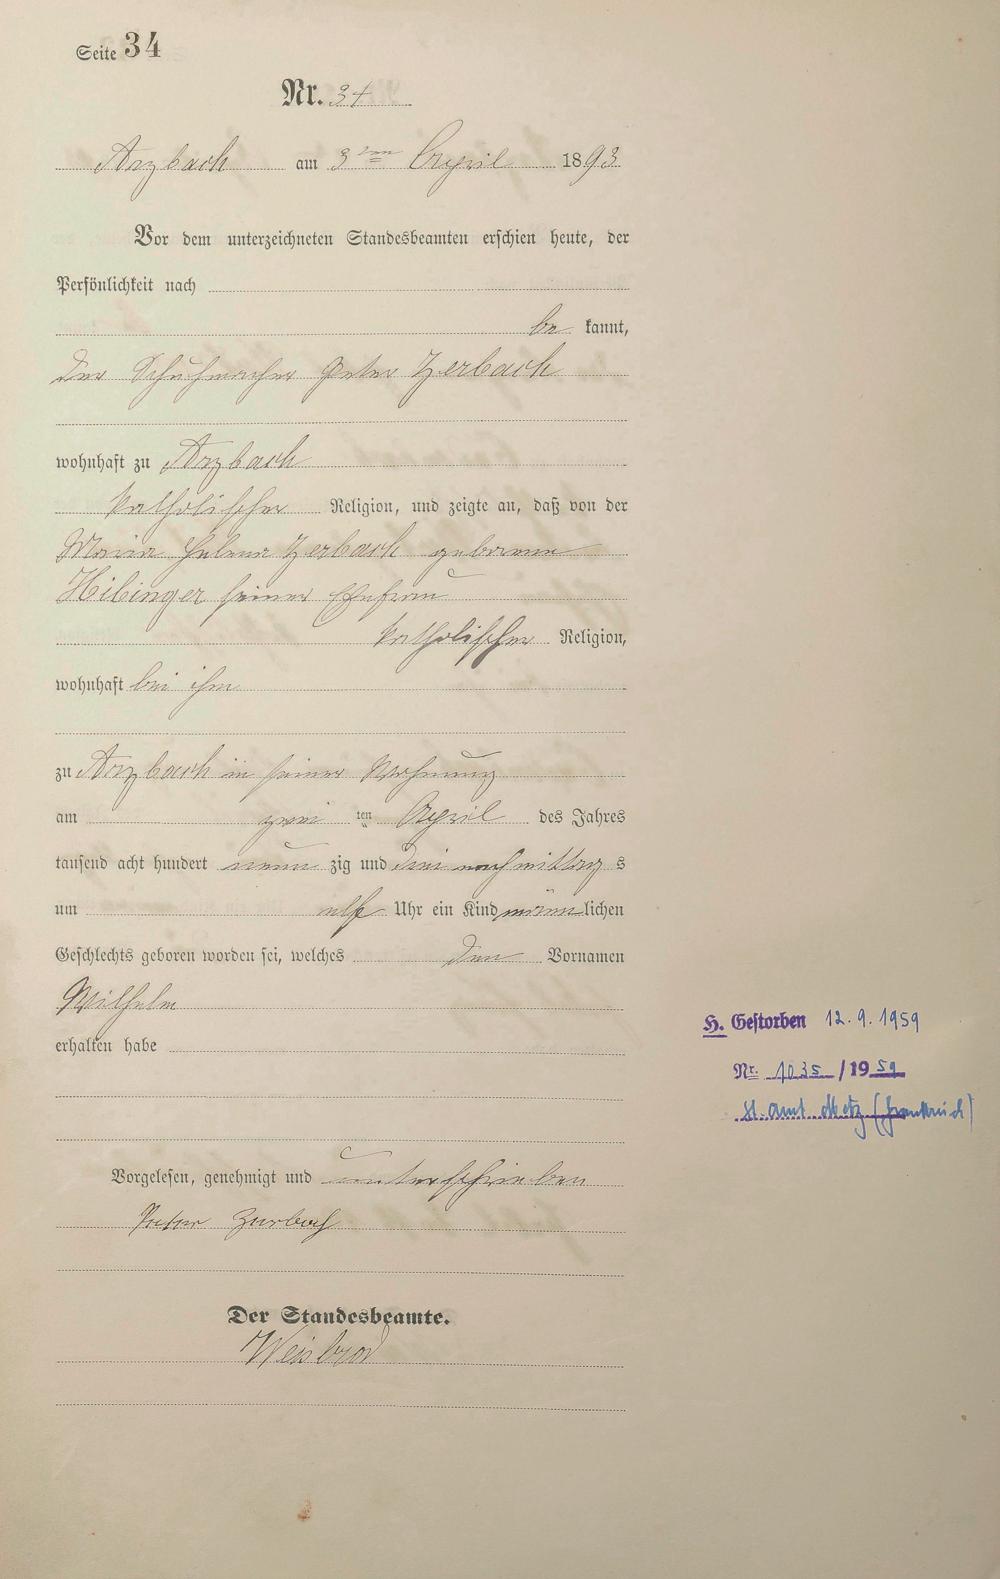 Seite 34
Nr. 34
Arzbach am 3ten April 1893
Vor dem unterzeichneten Standesbeamten erschien heute, der
Persönlichkeit nach
be kannt,
der Schuhmacher Peter Zerbach
wohnhaft zu Arzbach
katholischer Religion, und zeigte an, daß von der
Maria Helena Zerbach geborene
Hilbinger seiner Ehefrau
katholischer Religion,
wohnhaft bei ihm
zu Arzbach in seiner Wohnung
am zwei ten April des Jahres
tausend acht hundert neun zig und drei nachmittag s
um elf Uhr ein Kind männ lichen
Geschlechts geboren worden sei, welches den Vornamen
Wilhelm
erhalten habe
H. Gestorben 12.9.1959
Nr. 1035/1959
St. Amt Metz (Frankreich)
Vorgelesen, genehmigt und unterschrieben
Peter Zerbach
Der Standesbeamte.
Weisbrod